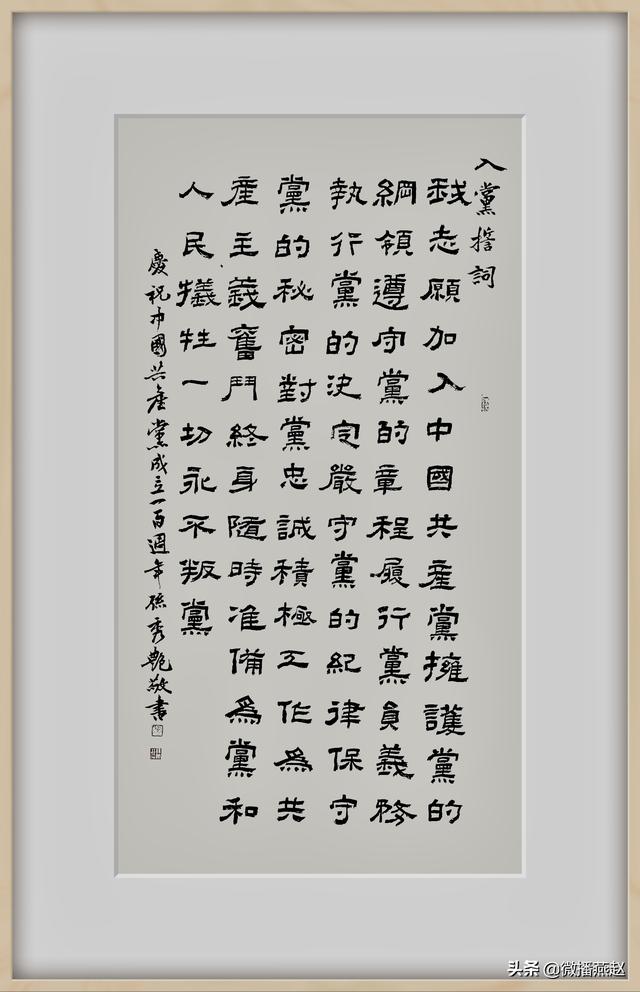 入黨誓詞
我志願加入中國共産黨擁護黨的
綱領遵守黨的章程履行黨員義務
執行黨的決定嚴守黨的紀律保守
黨的秘密對黨忠誠積極工作為共
産主義奮鬥終身隨時准備為黨和
人民犧牲一切永不叛黨
慶祝中國共産黨成立一百週年孫秀艷敬書
头条 @微播燕赵